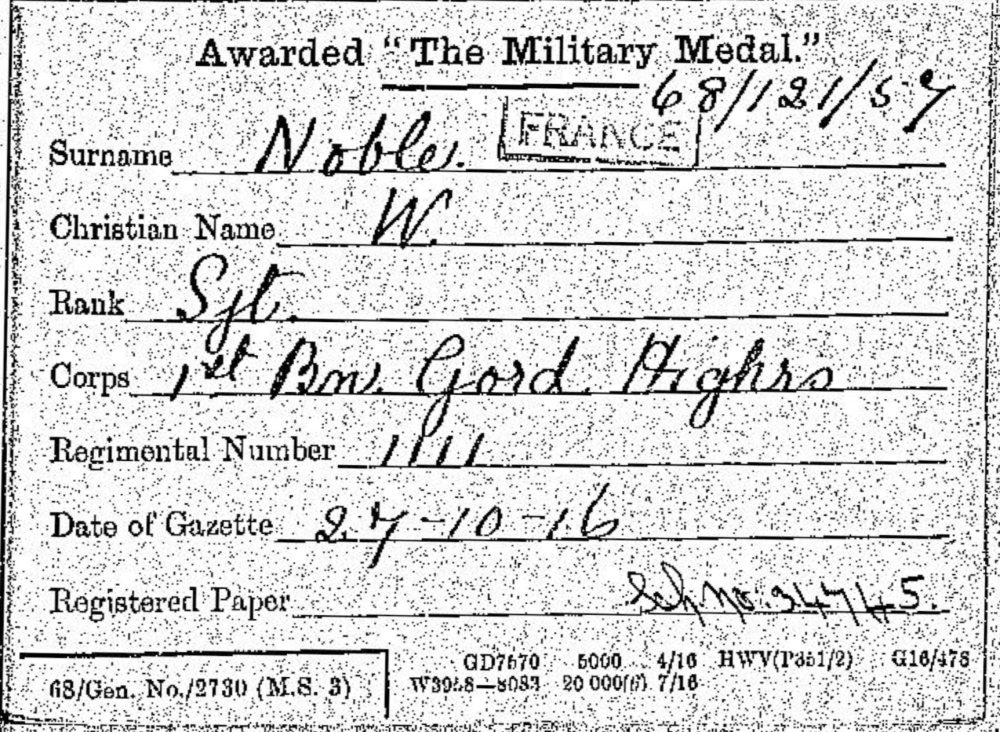 Awarded "The Military Medal."
68/121/57
FRANCE
Surname Noble.
Christian Name W.
Rank Sjt.
Corps 1st Bn. Gord. Highrs
Regimental Number 1111
Date of Gazette 27-10-16
Registered Paper Sch No. 34745.
GD7670 5000 4/16 HWV(P351/2) G16/478
68/Gen. No./2730 (M.S. 3) W3958—8083 20 000(6) 7/16